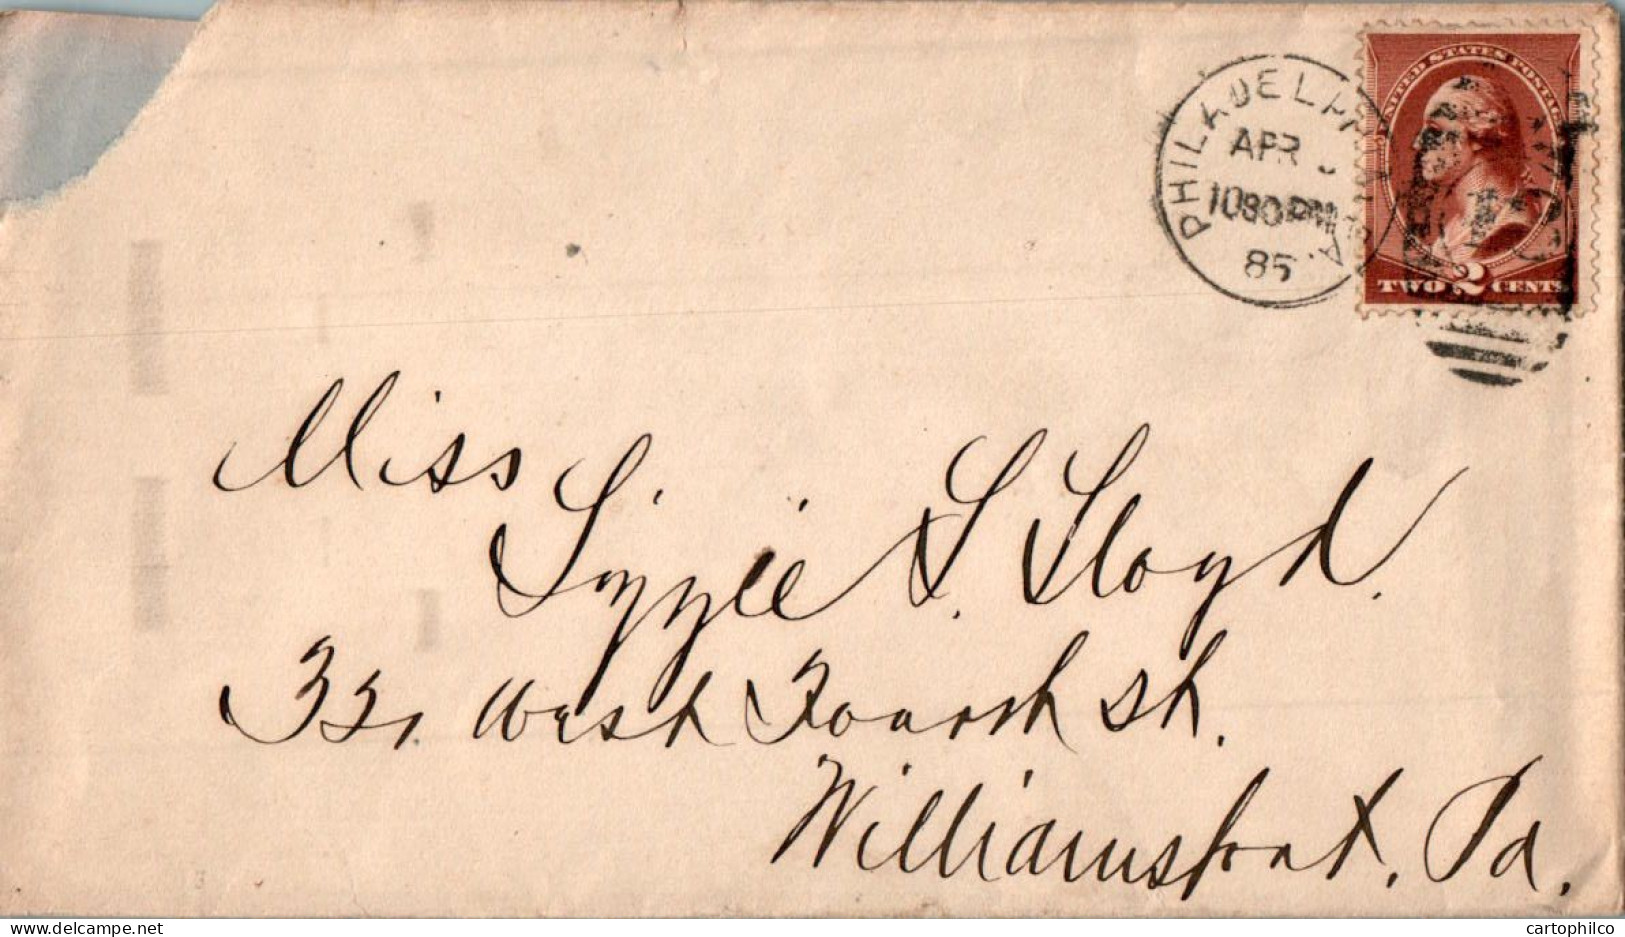 PHILADELPHIA
APR
1030PM
85
UNITED STATES POSTAGE
TWO 2 CENTS
Miss
Lizzie S. Lloyd.
331 West Fourth St.
Williamsport, Pa.
delcampe.net
cartophilco